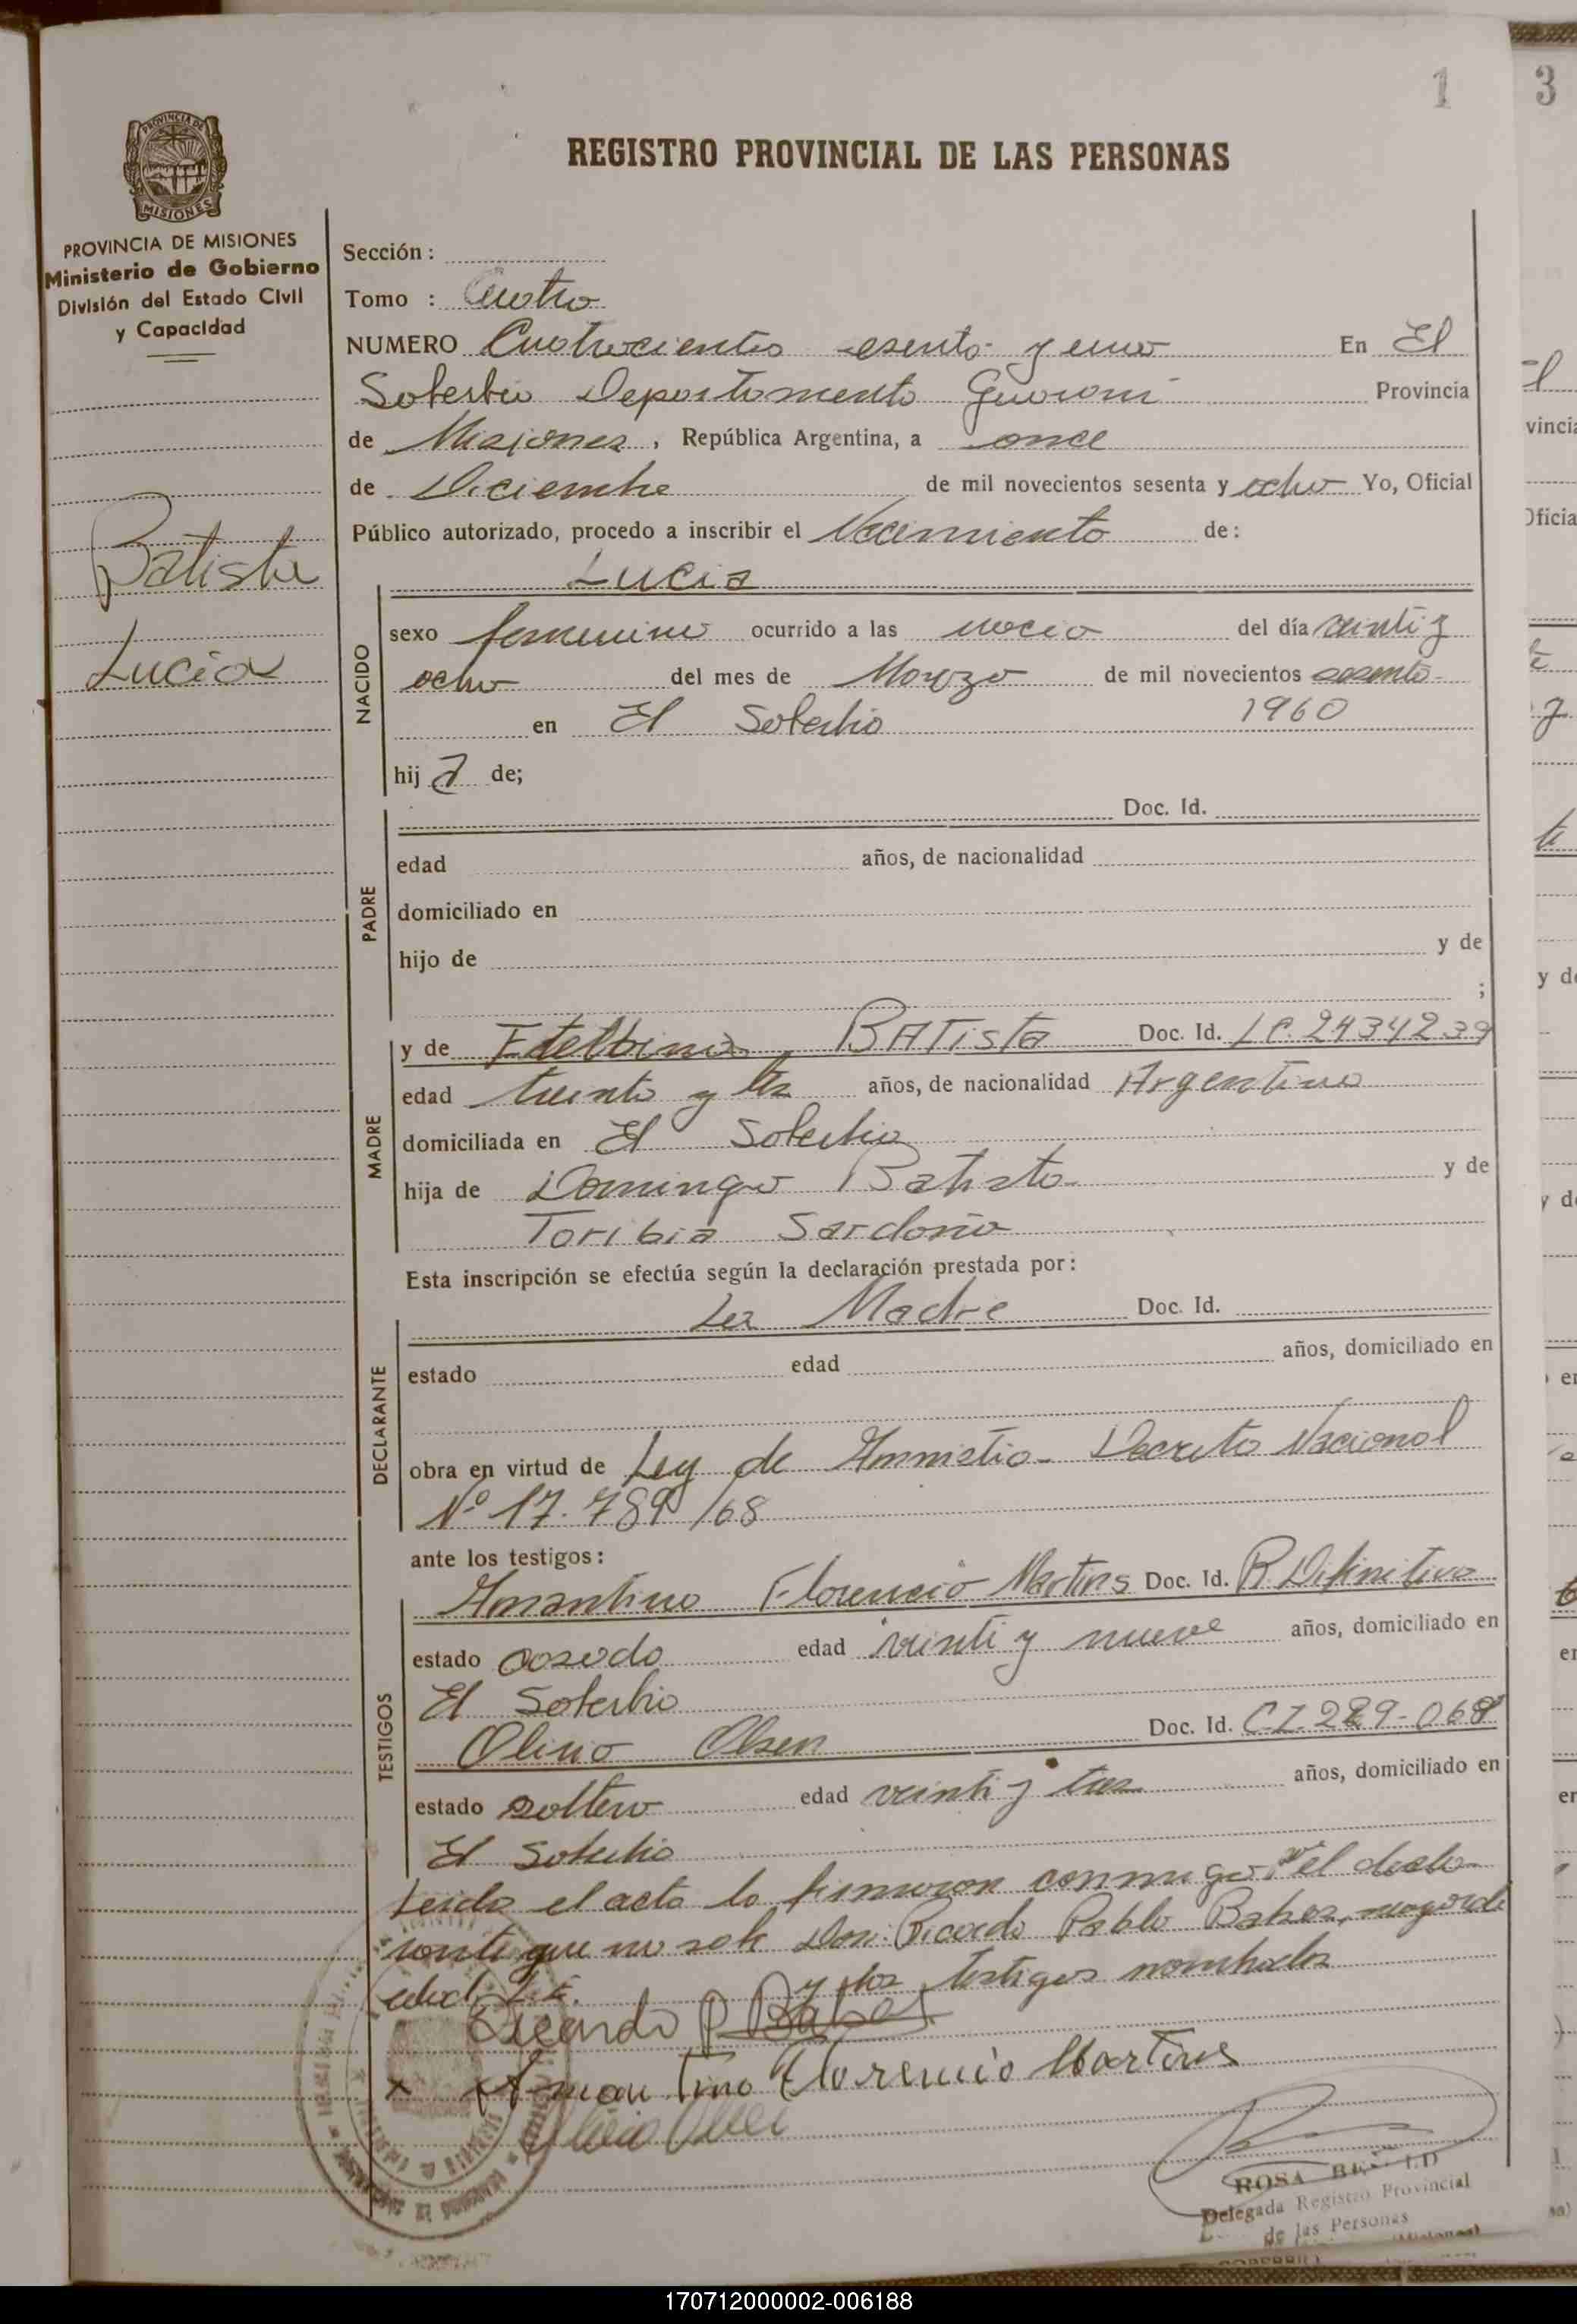 1
3
REGISTRO PROVINCIAL DE LAS PERSONAS
PROVINCIA DE MISIONES
PROVINCIA DE MISIONES
Ministerio de Gobierno
División del Estado Civil
y Capacidad
Batista
Lucia
Sección :
Tomo : Cuatro
NUMERO Cuatrocientos sesenta y uno En El
Soberbio Departamento Guarani Provincia
de Misiones, República Argentina, a once
de Diciembre de mil novecientos sesenta y ocho Yo, Oficial
Público autorizado, procedo a inscribir el Nacimiento de:
Lucia
NACIDO
sexo femenino ocurrido a las del día veinti y
ocho del mes de Marzo de mil novecientos sesenta
en El Soberbio 1960
hij a de;
PADRE
Doc. Id.
edad años, de nacionalidad
domiciliado en
hijo de y de
;
MADRE
y de Etelbina BATista Doc. Id. LC. 2434239
edad treinta y tres años, de nacionalidad Argentina
domiciliada en El Soberbio
hija de Domingo Batista y de
Toribia Sardoña
Esta inscripción se efectúa según la declaración prestada por:
DECLARANTE
La Madre Doc. Id.
estado edad años, domiciliado en
obra en virtud de Ley de Amnistia - Decreto Nacional
Nº 17.789/68
ante los testigos:
TESTIGOS
Amantino Florencio Martins Doc. Id. R. Difinitiva
estado casado edad veinti y nueve años, domiciliado en
El Soberbio
Olino Olsen Doc. Id. C.I. 289-068
estado soltero edad veinti y tres años, domiciliado en
El Soberbio
Leida el acta lo firmaron conmigo, por el decla-
rante que no sabe Don: Ricardo Pablo mayor de
edad. y los testigos nombrados
Ricardo P.
x Amantino Florencio Martins
ROSA
Delegada Registro Provincial
de las Personas
170712000002-006188